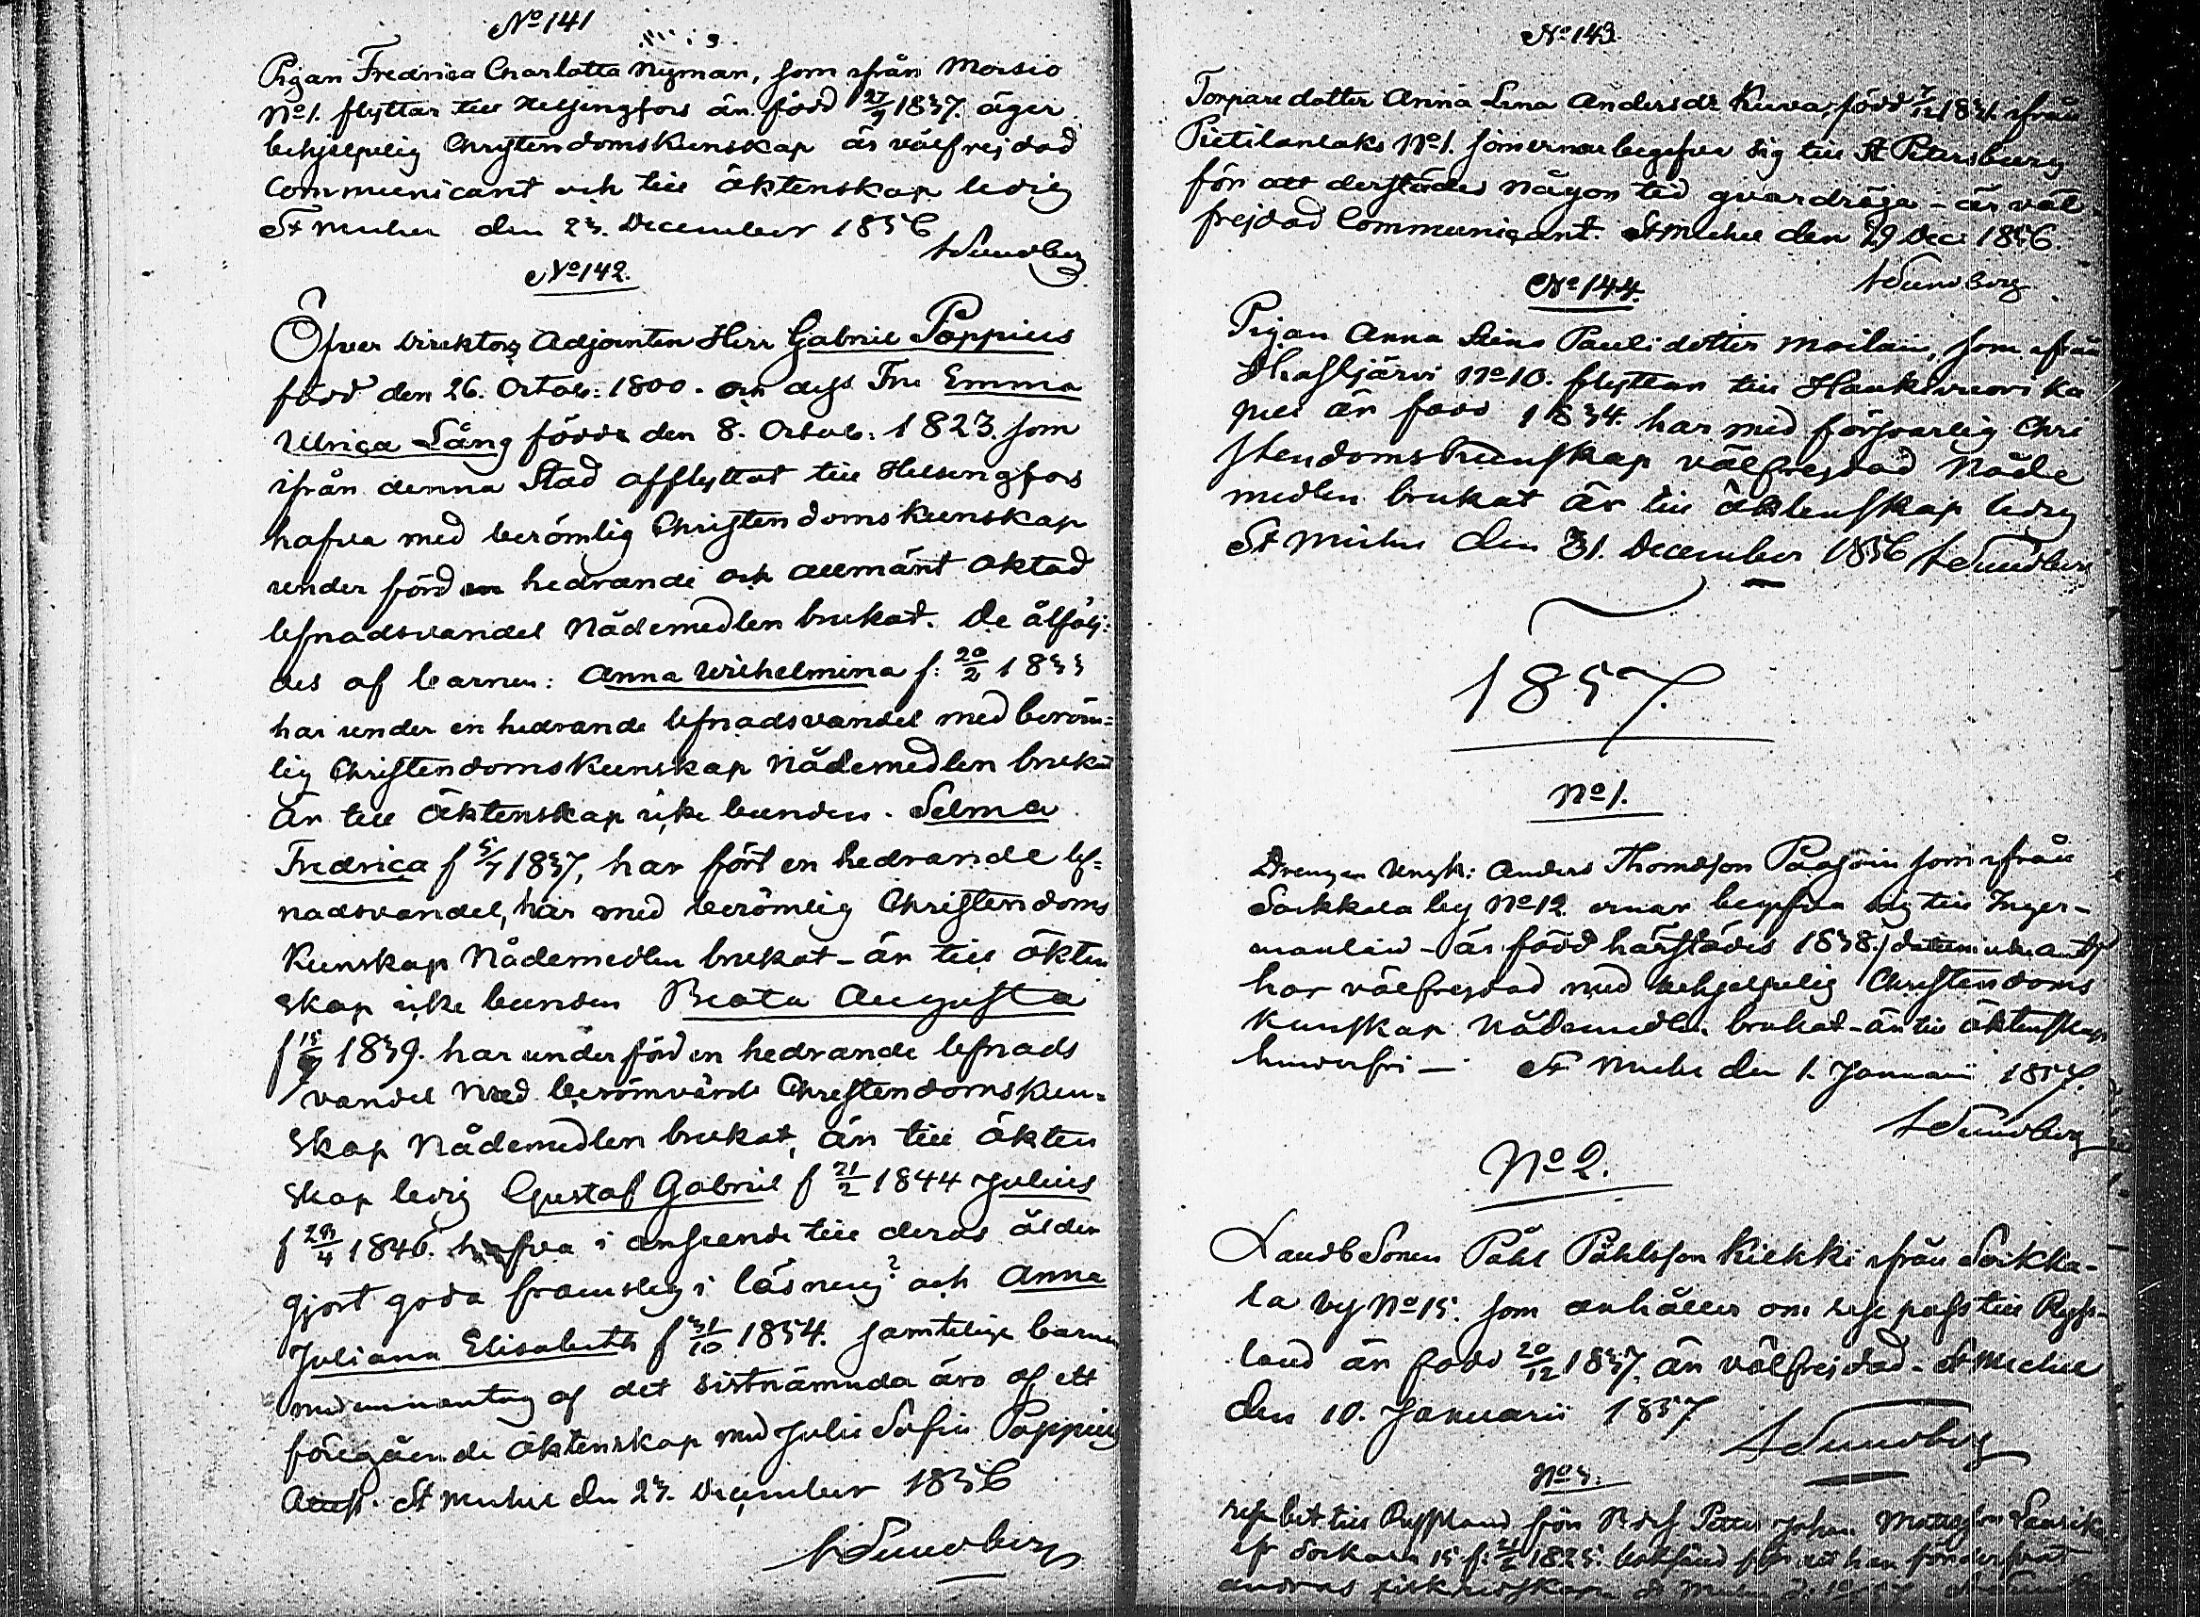 No 141
Pigan Fredrica Charlotta Nyman, som ifrån Moisio
No 1. flyttar till Helsingfors är född 27/9 1837. äger
behjelpelig Christendomskunskap är välfrejdad
Communicant och till äktenskap ledig
St Michel den 23. December 1856
A Sundberg
No 142.
Öfver Direktors Adjointen Herr Gabriel Poppius
född den 26. Octob: 1800. och dess Fru Emma
Ulrica Lång född den 8. Octob: 1823. som
ifrån denna Stad afflyttat till Helsingfors
hafva med berömlig Christendomskunskap
under förd hedrande och allmänt aktad
lefnadsvandel Nådemedlen brukat. De åtföl:
des af barnen: Anna Wilhelmina f: 20/2 1833
har under en hedrande lefnadsvandel med beröm=
lig Christendomskunskap Nådemedlen brukat
är till Äktenskap icke bunden. Selma
Fredrica f 5/7 1837, har fört en hedrande lef=
nadsvandel, har med berömlig Christendoms
Kunskap Nådemedlen brukat – är till äkten
skap icke bunden Beata Augusta
f 15/9 1839. har under förd en hedrande lefnads
vandel med berömvärd Christendomskun=
skap Nådemedlen brukat, är till äkten
skap ledig Gustaf Gabriel f 21/2 1844 Julius
f 23/4 1846. hafva i anseende till deras ålder
gjort goda framsteg i läsning? och Anna
Juliana Elisabeth f 31/10 1854. samtelige barnen
med undantag af det sistnämnda äro af ett
föregående äktenskap med Julie Sofie Poppius
Attest. St Michel den 23. December 1856
A Sundberg
No 143.
Torpare dotter Anna Lena Andersdr Kuva, född 7/12 1831. ifrån
Pietilanlaks No 1. som ernar begifva sig till St Petersburg
för att derstädes någon tid qvardröja – är väl
frejdad Communicant. St Michel den 29 Dec: 1856.
A Sundberg
No 144.
Pigan Anna Stina Paulidotter Moilain, som ifrån
No 10. flyttar till Haukivuori ka
pell är född 1834. har med försvarlig Chri
stendomskunskap välfrejdad Nåde
medlen brukat är till äktenskap ledig
St Michel den 31. December 1856 A Sundberg
1857.
No 1.
Drengen Ungk: Anders Thomasson Paasoin som ifrån
Soikkala by No 12. ernar begifva sig till Inger–
manland – är född härstädes 1838.
har välfrejdad med behjelpelig Christendoms
kunskap Nådemedlen brukat – är till äktenskap
hinderfri – St Michel den 1. Januarii 1857.
A Sundberg
No 2.
Landb Sonen Påhl Påhlsson Kiekki ifrån Soikka–
la by No 15. som anhåller om respass till Ryss–
land är född 20/12 1837. är välfrejdad – St Michel
den 10. Januarii 1857
A Sundberg
No 3.
Resebet till Ryssland för Petter Johan Mattsson
15 f: 1825.